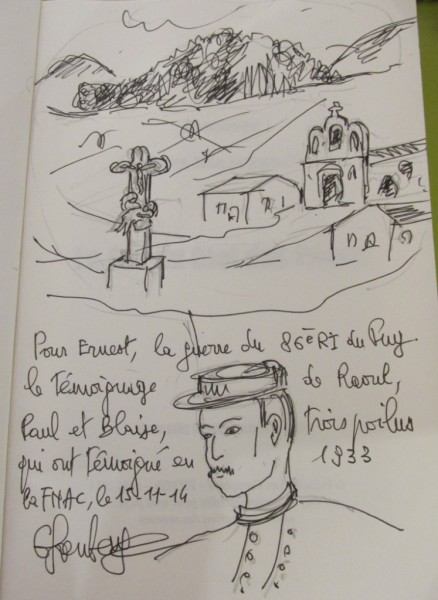 Pour Ernest, la guerre du 86ème RI du Puy
le témoignage de Raoul,
Paul et Blaise, trois poilus
qui ont témoigné en 1933
la FNAC, le 15-11-14